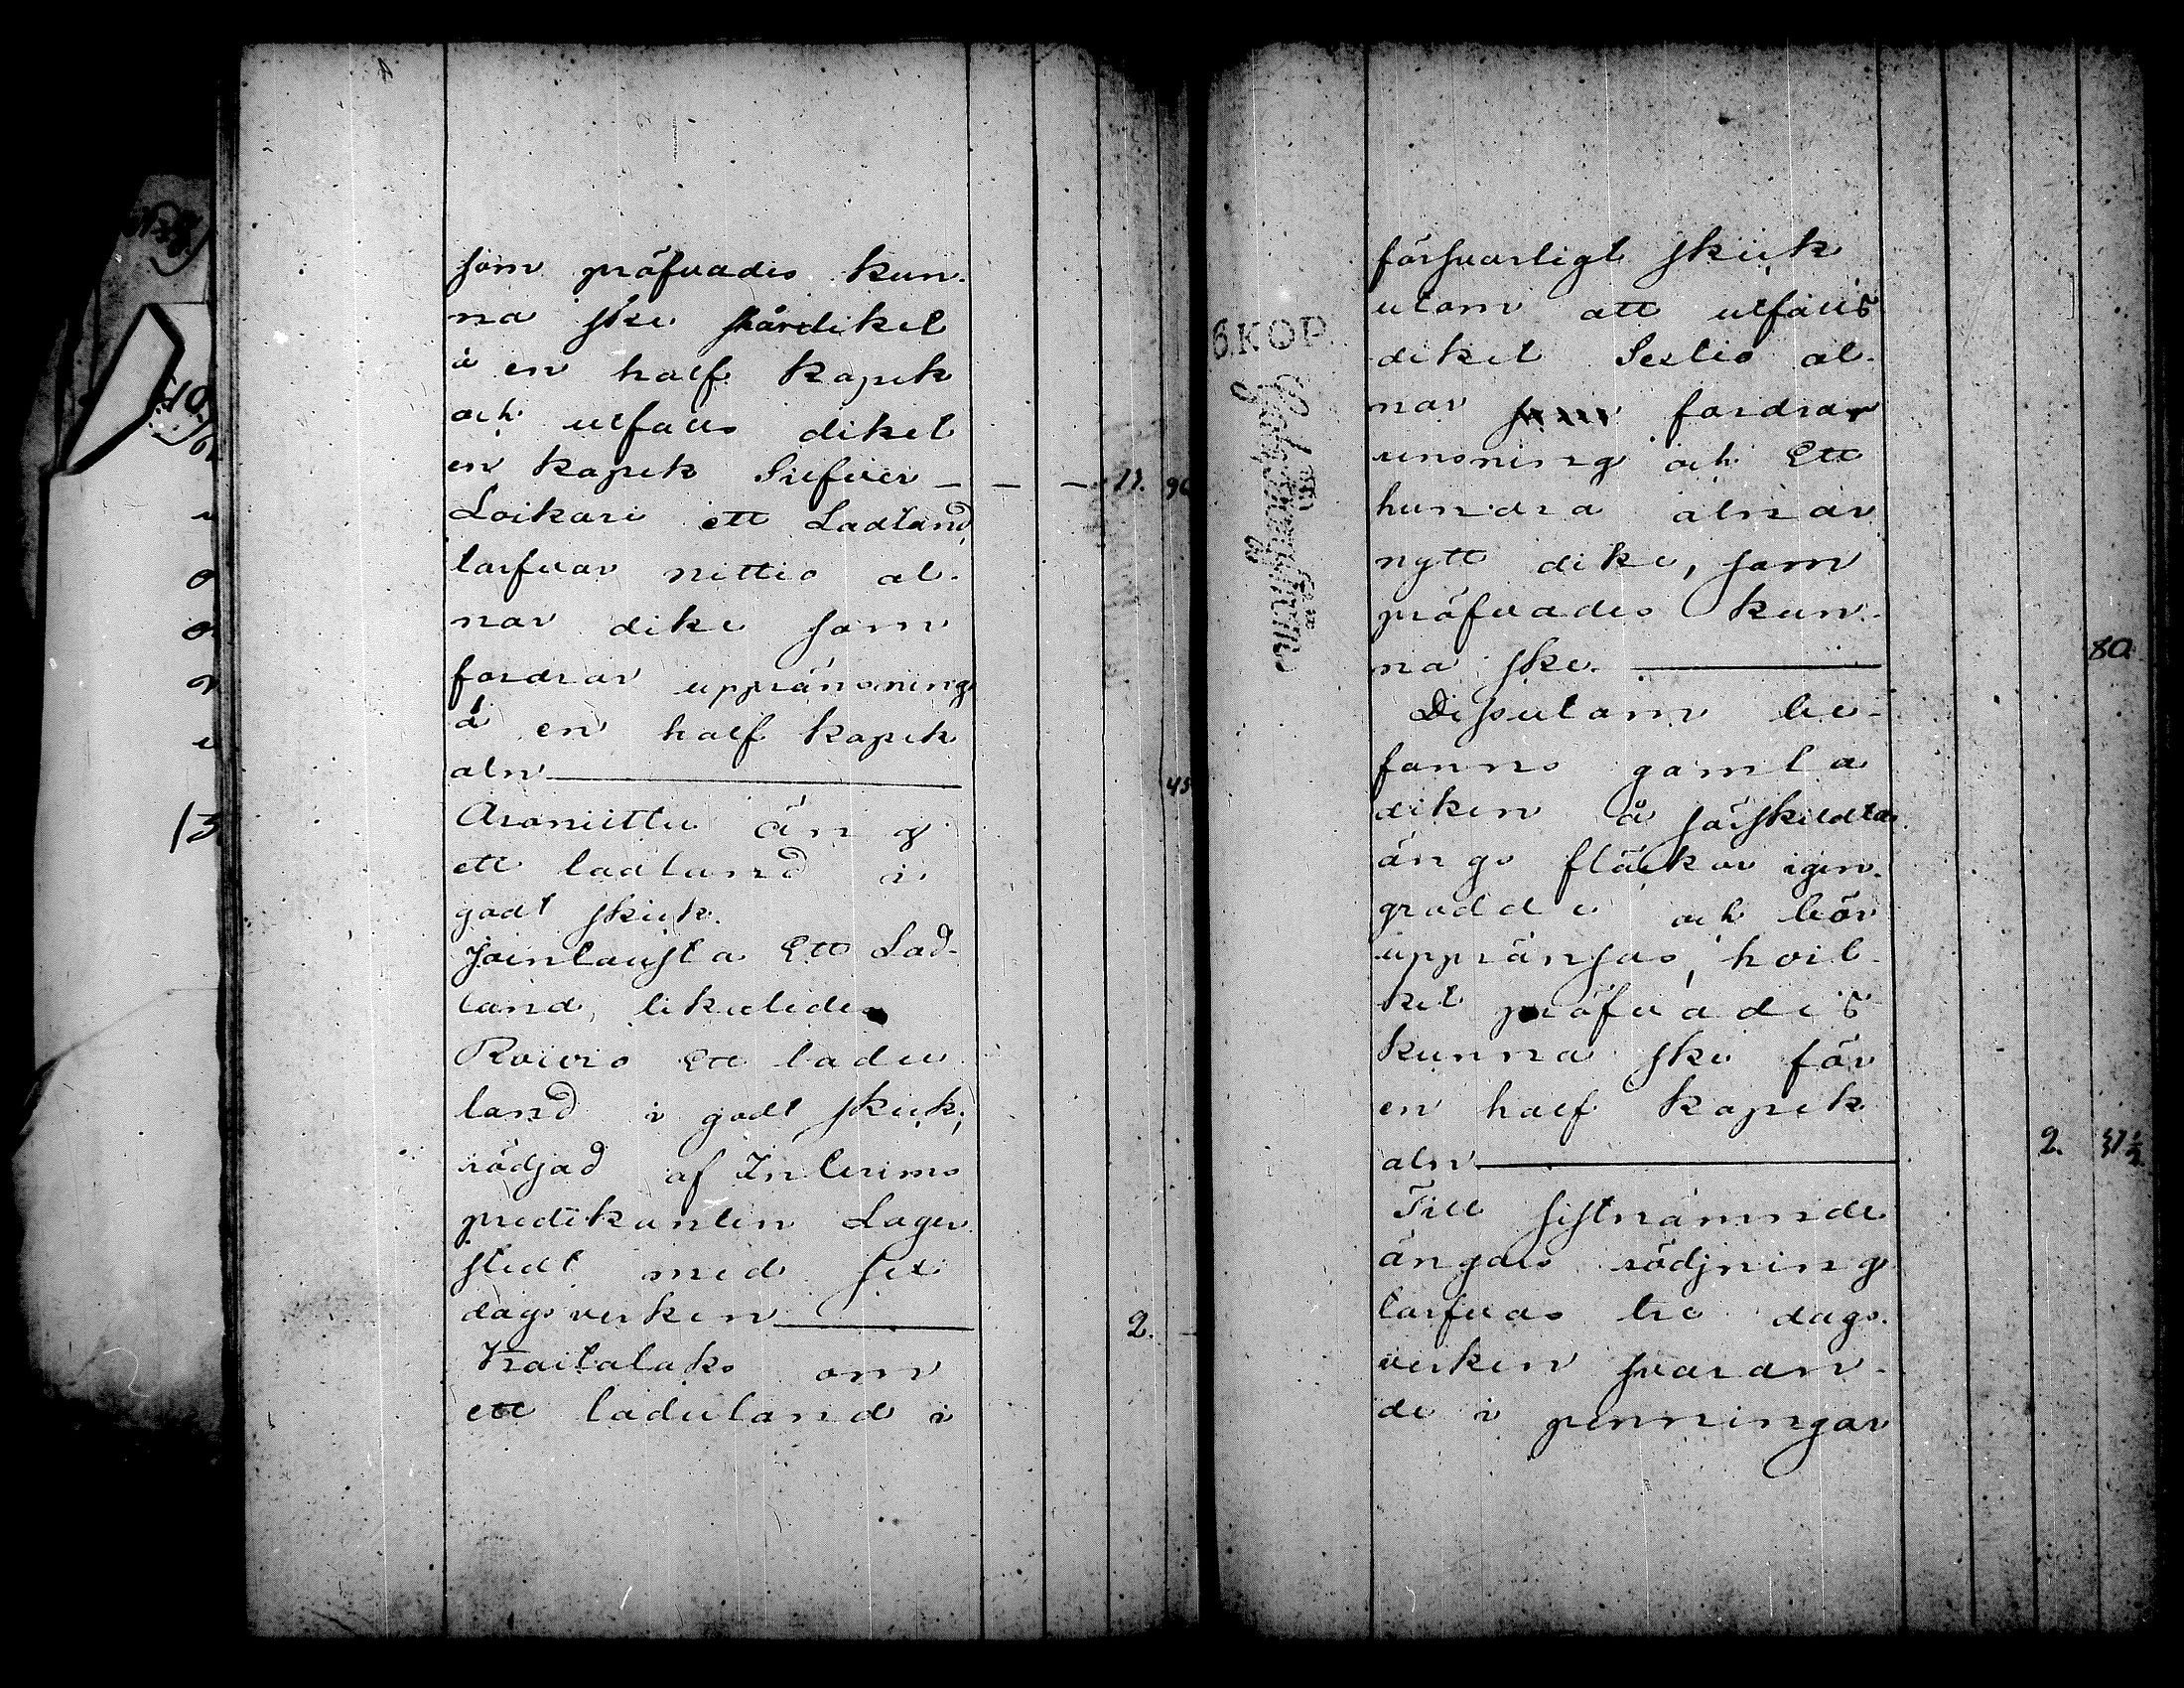 som pröfvades kun-
na ske skärdiket
à en half kapek
och utfalls diket
en kapek Silfver — — — 11. 90
Loikari ett Ladland
tarfvar nittio al-
nar dike som
fordrar uppränsning
à en half kapek
aln 45
Aroniittu äng
ett ladland i
godt skick.
Joenlausta Ett Lad-
land, likaledes
Roivio Ett ladu
land i godt skick,
rödjad af Interims
predikanten Lager
stedt med sex
dagsverken 2. —
Kraitalaks om
ett laduland i
6. KOP.
försvarligt skick
utom att utfalls
diket Sextio al-
nar fordrar
rensning och Ett
hundra alnar
nytt dike, som
pröfvades kun-
na ske. 80.
Dessutom be-
fanns gamla
diken å särskildta
ängs fläckar igen-
grodde och bör
uppränsas, hvil-
ket pröfvades
kunna ske för
en half kapek
aln 2. 37 1/2.
Till sistnämnde
ängars rödjning
tarfvas tre dags-
verken svaran-
de i penningar